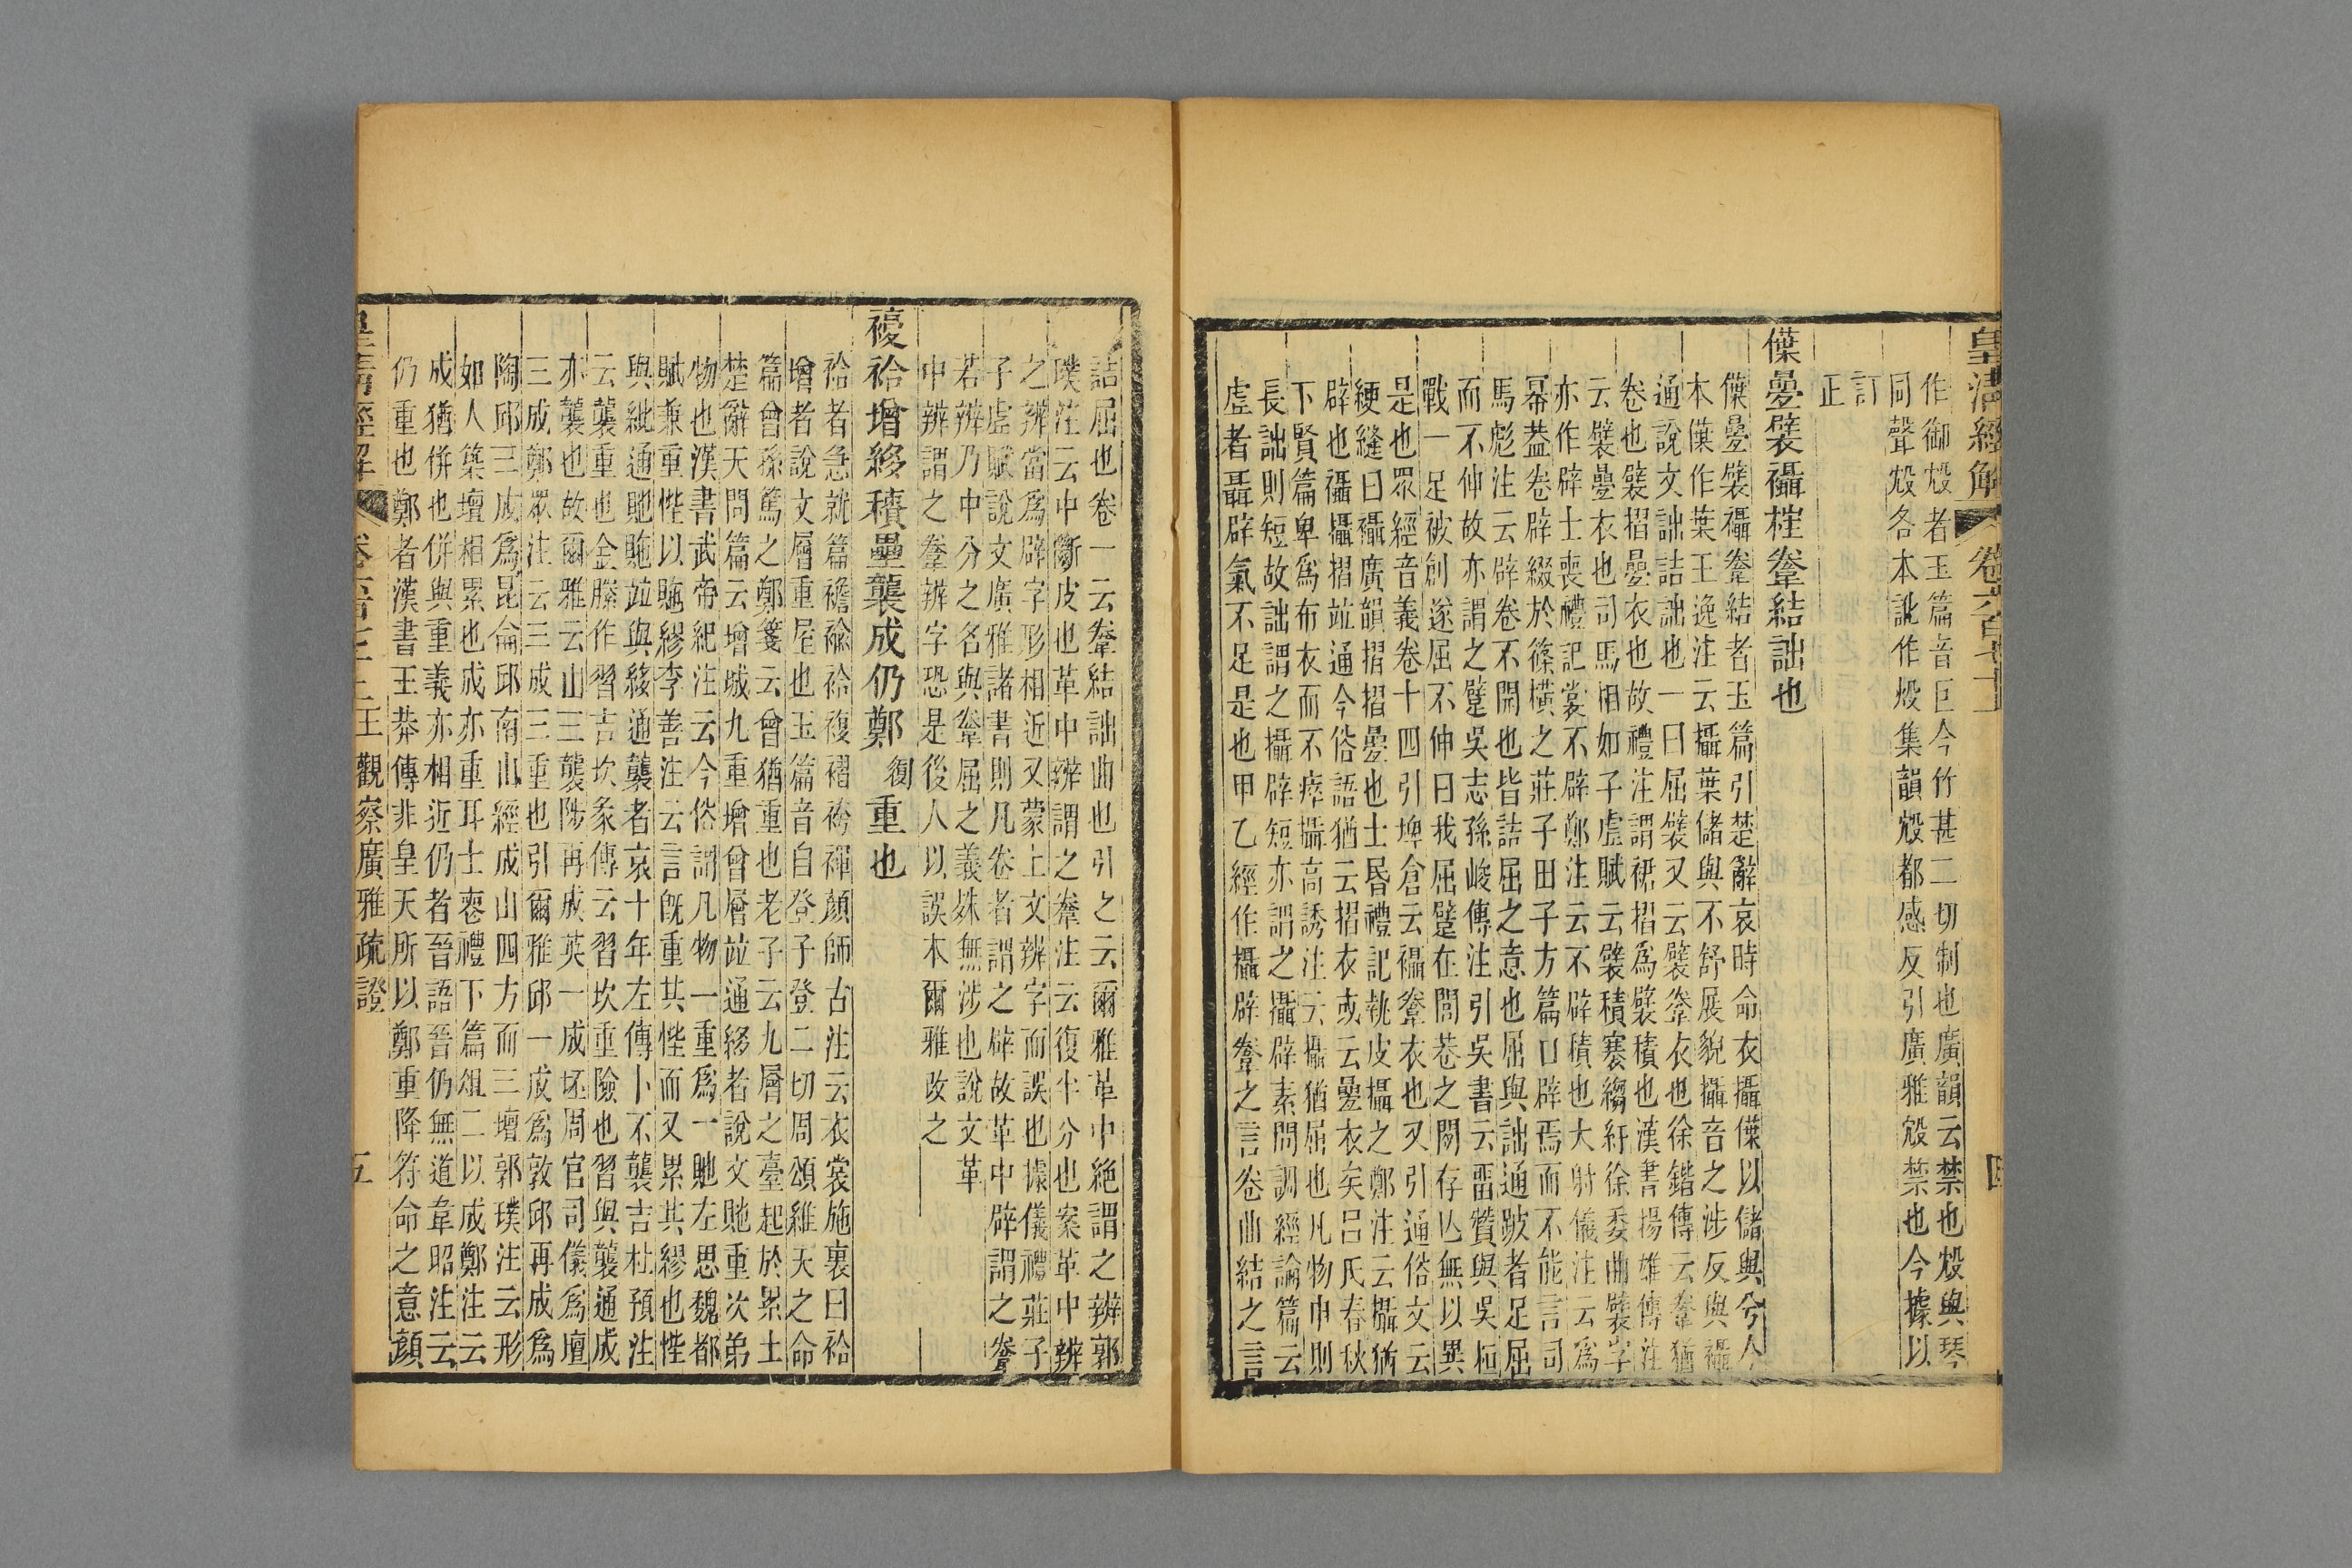 皇清經解 卷六百七十一 四
作御㱽者玉篇音巨今竹甚二切制也廣韻云禁也㱽與琴
同聲㱽各本訛作㱽集韻㱽都感反引廣雅㱽禁也今據以
訂
正
僷疊襞襵桂韏結詘也
僷疊襞襵韏結者玉篇引楚辭哀時命衣攝僷以儲與兮今
本僷作葉王逸注云攝葉儲與不舒展貌攝音之涉反與襵
通說文詘詰詘也一曰屈襞又云襞韏衣也徐鍇傳云韏猶
卷也襞摺疊衣也故禮注謂裙摺爲襞積也漢書揚雄傳注
云襞疊衣也司馬相如子虛賦云襞積褰縐紆徐委曲襞字
亦作辟士喪禮記裳不辟鄭注云不辟積也大射儀注云爲
冪蓋卷辟綴於篠橫之莊子田子方篇口辟焉而不能言司
馬彪注云辟卷不開也皆詰屈之意也屈與詘通跛者足屈
而不伸故亦謂之躄吳志孫峻傳注引吳書云畱贊與吳桓
戰一足被創遂屈不伸曰我屈躄在閭巷之閒存亾無以異
是也眾經音義卷十四引埤倉云襵韏衣也又引通俗文云
緶縫曰襵廣韻摺摺疊也士昏禮記執皮攝之鄭注云攝猶
辟也襵攝摺竝通今俗語猶云摺衣或云疊衣矣呂氏春秋
下賢篇卑爲布衣而不瘁攝高誘注云攝猶屈也凡物申則
長詘則短故詘謂之攝辟短亦謂之攝辟素問調經論篇云
虛者聶辟氣不足是也甲乙經作攝辟韏之言卷曲結之言
詰屈也卷一云韏結詘曲也引之云爾雅革中絕謂之辨郭
璞注云中斷皮也革中辨謂之韏注云復半分也案革中辨
之辨當爲辟字形相近又蒙上文辨字而誤也據儀禮莊子
子虛賦說文廣雅諸書則凡卷者謂之辟故革中辟謂之韏
若辨乃中分之名與韏屈之義殊無涉也說文革
中辨謂之韏辨字恐是後人以誤本爾雅改之
褹袷增䄬積壘襲成仍鄭複重也
袷者急就篇襜褕袷複褶袴褌顏師古注云衣裳施裏曰袷
增者說文層重屋也玉篇音自登子登二切周頌維天之命
篇曾孫篤之鄭箋云曾猶重也老子云九層之臺起於累土
楚辭天問篇云增城九重增曾層竝通䄬者說文貤重次弟
物也漢書武帝紀注云今俗謂凡物一重爲一貤左思魏都
賦兼重悂以貤繆李善注云言旣重其悂而又累其繆也悂
與紕通貤貤竝與䄬通襲者哀十年左傳卜不襲吉杜預注
云襲重也金縢作習吉坎彖傳云習坎重險也習與襲通成
亦襲也故爾雅云山三襲陟再成英一成坯周官司儀爲壇
三成鄭眾注云三成三重也引爾雅邱一成爲敦邱再成爲
陶邱三成爲昆侖邱南山經成山四方而三壇郭璞注云形
如人築壇相累也成亦重耳士喪禮下篇俎二以成鄭注云
成猶併也併與重義亦相近仍者晉語晉仍無道韋昭注云
仍重也鄭者漢書王莽傳非皇天所以鄭重降符命之意顏
皇清經解 卷六百七十一 王觀察廣雅疏證 五